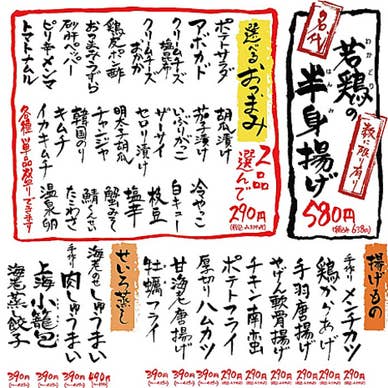 名代
若鶏の
わかどり
半身揚げ
はんみ
数に限り有り
580円
(税込638円)
選べるおつまみ
2品
選んで
290円
ポテトサラダ
アボカド
クリームチーズ
塩昆布
クリームチーズ
おかか
鶏皮ポン酢
砂肝ペッパー
ピリ辛メンマ
トマトナムル
胡瓜漬け
茄子漬け
いぶりがっこ
ザーサイ
セロリ漬け
明太子胡瓜
チャンジャ
韓国のり
キムチ
イカキムチ
冷やっこ
白キュー
枝豆
塩辛
蟹みそ
鯖くんせい
たこわさ
温泉卵
各種単品売りできます
揚げもの
手作りメンチカツ
鶏からあげ
手羽唐揚げ
やげん軟骨揚げ
チキン南蛮
ポテトフライ
厚切りハムカツ
甘海老唐揚げ
牡蠣フライ
290円
290円
290円
290円
290円
290円
390円
390円
390円
せいろ蒸し
海老のせしゅうまい
手作り肉しゅうまい
上海小籠包
海老蒸し餃子
490円
390円
390円
390円